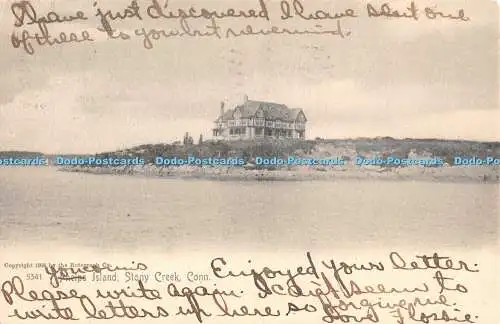 I have just discovered I have sent one
of these to you but nevermind.
Dodo-Postcards Dodo-Postcards Dodo-Postcards Dodo-Postcards Dodo-Postcards
Copyright 1905 by the Rotograph Co.
5341 Phelps Island, Stony Creek, Conn.
Enjoyed your letter.
Please write again. I can't seem to
write letters up here so forgive me.